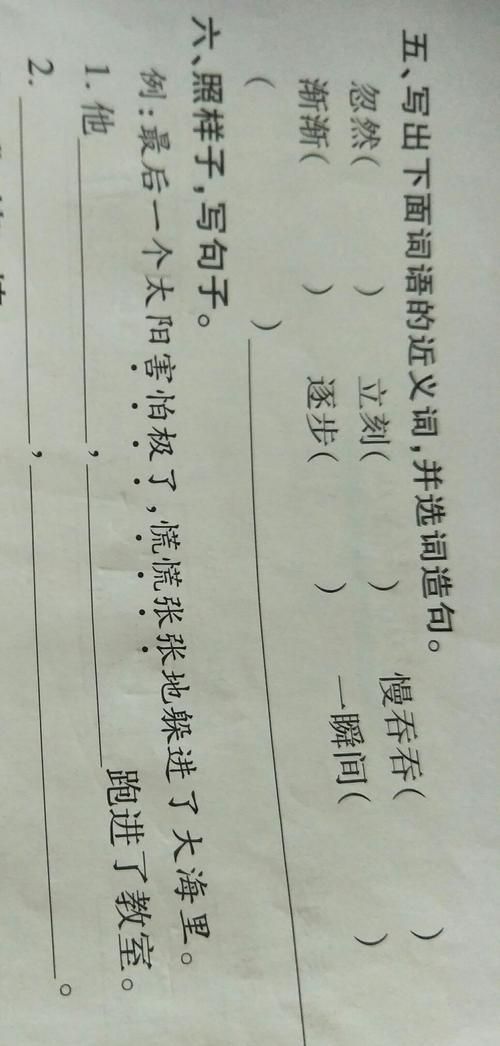 五、写出下面词语的近义词,并选词造句。
忽然(  ) 立刻(  ) 慢吞吞(  )
渐渐(  ) 逐步(  ) 一瞬间(  )
(  )
六、照样子,写句子。
例:最后一个太阳害怕极了,慌慌张张地躲进了大海里。
1. 他 , 跑进了教室。
2. , 。